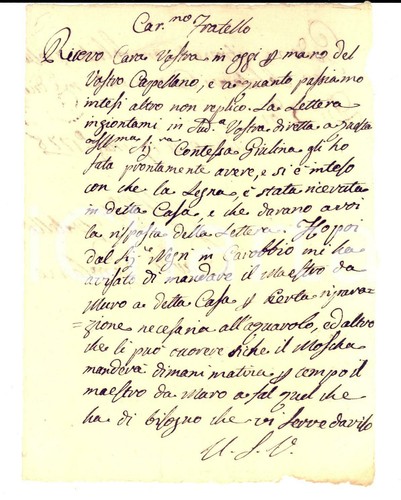 Car.mo Fratello
Ricevo Cara Vostra in oggi p mano del
Vostro Capellano, e a quanto passiamo
intesi altro non replico. La Lettera
ingiontami in Sud.a Vostra diretta a
Ill.ma Sig.ra Contessa Giulina gli ho
fata prontamente avere, e si è inteso
con che la Legna, è stata ricevuta
in detta Casa, e che darano a voi
la risposta della Lettera. Ho poi
dal Sig.re Negri in Carobbio mi ha
avisato di mandare il Maestro da
Muro a detta Casa p Certa ripara=
=zione necesaria all'aquavolo, ed altro
che li può ocorere siche il Moscha
manderà dimani matina p tempo il
maestro da Muro a fal quel che
ha di bisogno che vi serve d'aviso
U. S. V.